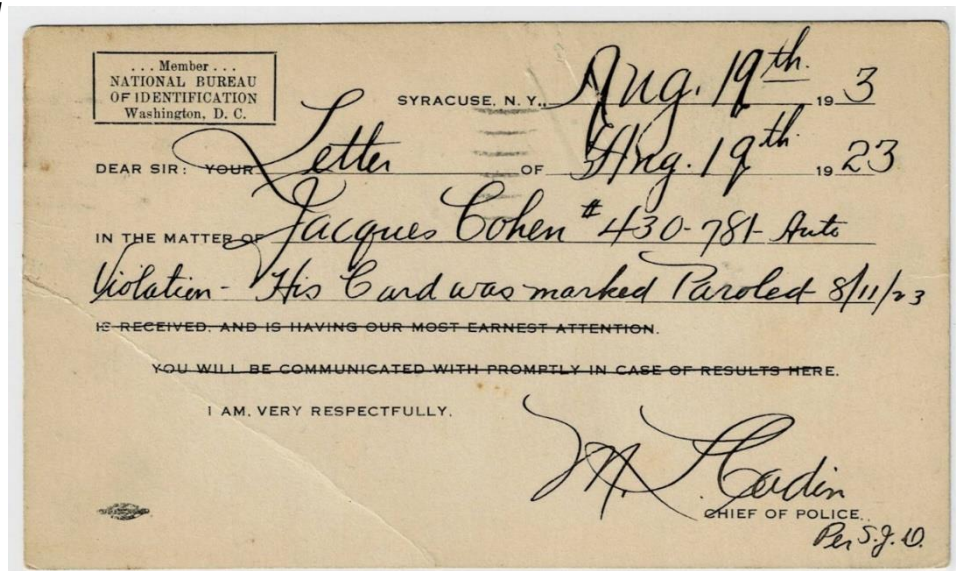 ... Member ...
NATIONAL BUREAU
OF IDENTIFICATION
Washington, D. C.
SYRACUSE, N. Y., Aug. 19th. 19 3
DEAR SIR: YOUR Letter OF Aug. 19th 19 23
IN THE MATTER OF Jacques Cohen # 430-781- Auto
Violation - His Card was marked Paroled 8/11/23
IS RECEIVED, AND IS HAVING OUR MOST EARNEST ATTENTION.
YOU WILL BE COMMUNICATED WITH PROMPTLY IN CASE OF RESULTS HERE.
I AM, VERY RESPECTFULLY,
M. L. Cadin
CHIEF OF POLICE.
Per S.J.D.